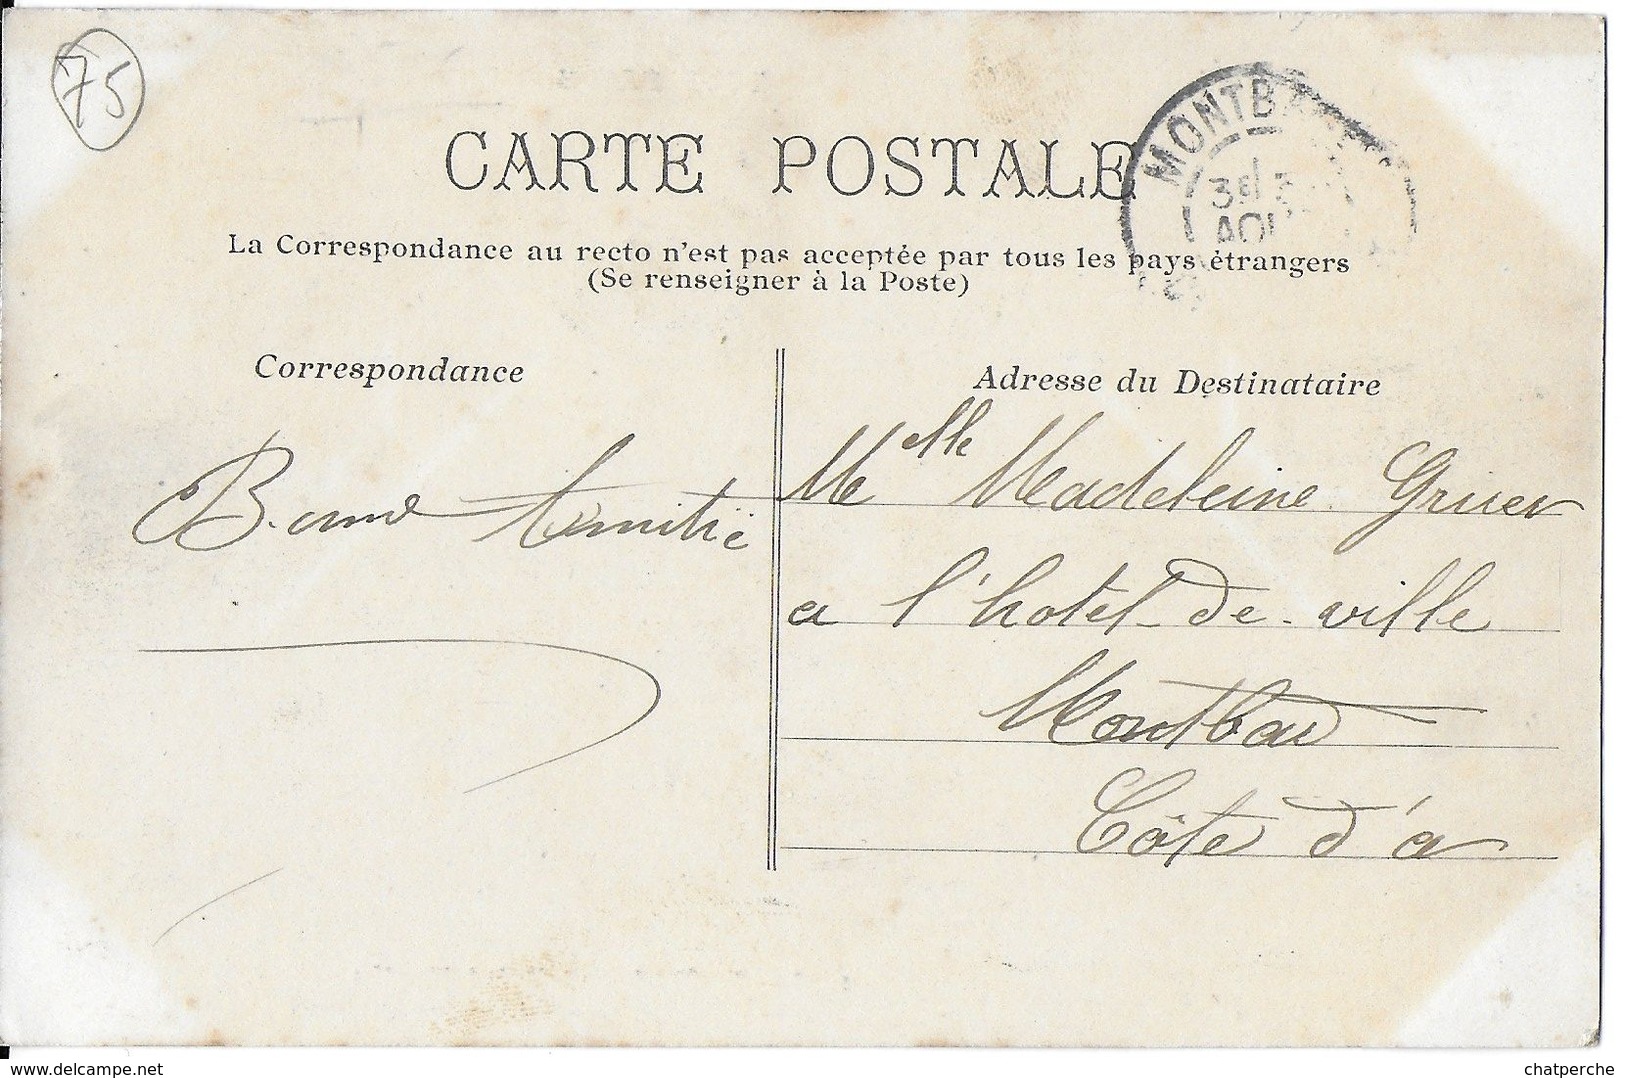 75
CARTE POSTALE
MONTBA
3E
AOU
La Correspondance au recto n'est pas acceptée par tous les pays étrangers
(Se renseigner à la Poste)
Correspondance
Adresse du Destinataire
Bonne Amitié
Melle Madeleine Gruer
a l'hotel-de-ville
Montbard
Côte d'or
delcampe.net
chatperche